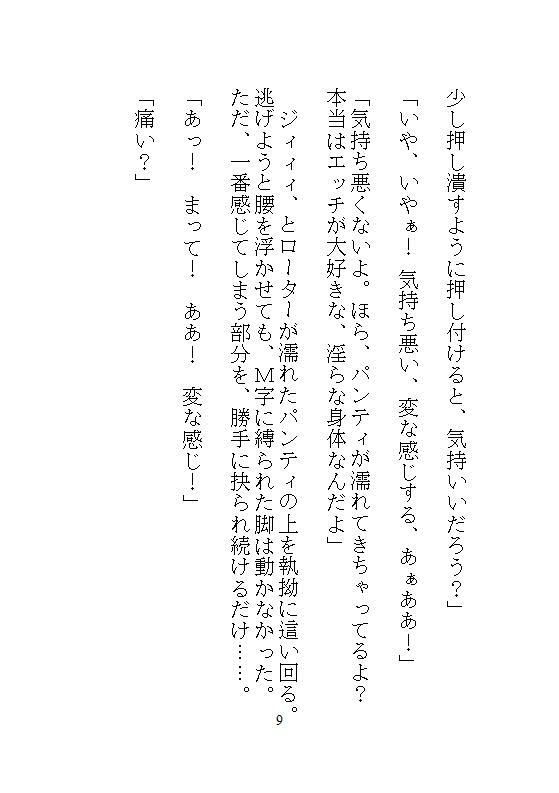 少し押し潰すように押し付けると、気持いいだろう？」
「いや、いやぁ！ 気持ち悪い、変な感じする、あぁああ！」
「気持ち悪くないよ。ほら、パンティが濡れてきちゃってるよ？
本当はエッチが大好きな、淫らな身体なんだよ」
　ジィィィ、とローターが濡れたパンティの上を執拗に這い回る。
逃げようと腰を浮かせても、Ｍ字に縛られた脚は動かなかった。
ただ、一番感じてしまう部分を、勝手に抉られ続けるだけ……。
「あっ！　まって！　ああ！　変な感じ！」
「痛い？」
9